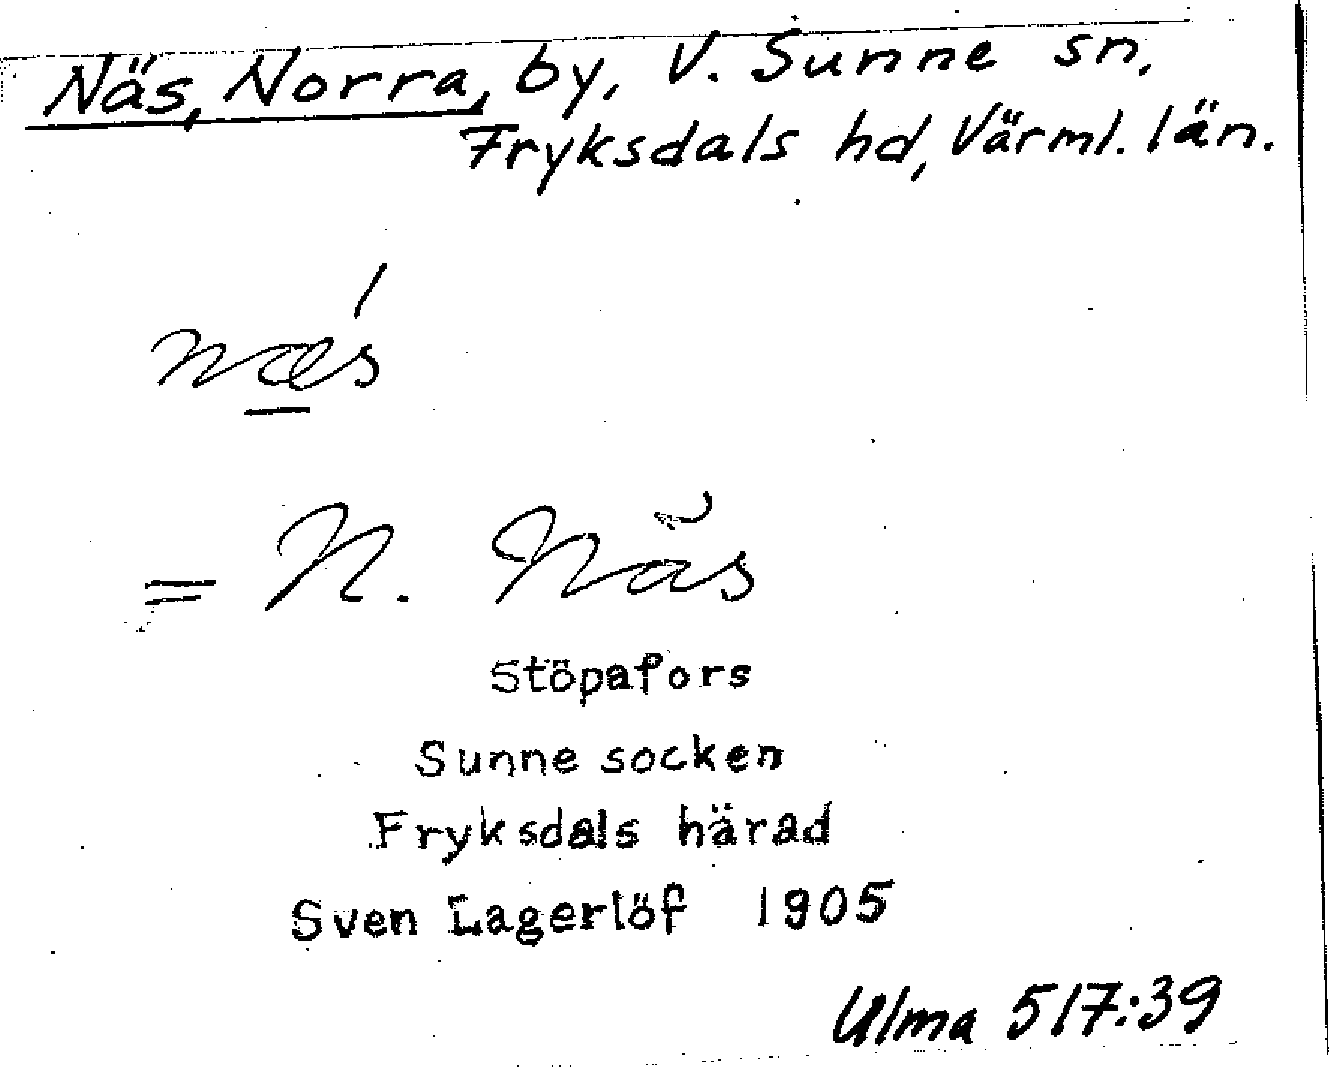 Näs, Norra, by, V. Sunne sn,
Fryksdals hd, Värml. län.
næs
= N. Näs
Stöpafors
Sunne socken
Fryksdals härad
Sven Lagerlöf 1905
Ulma 517:39